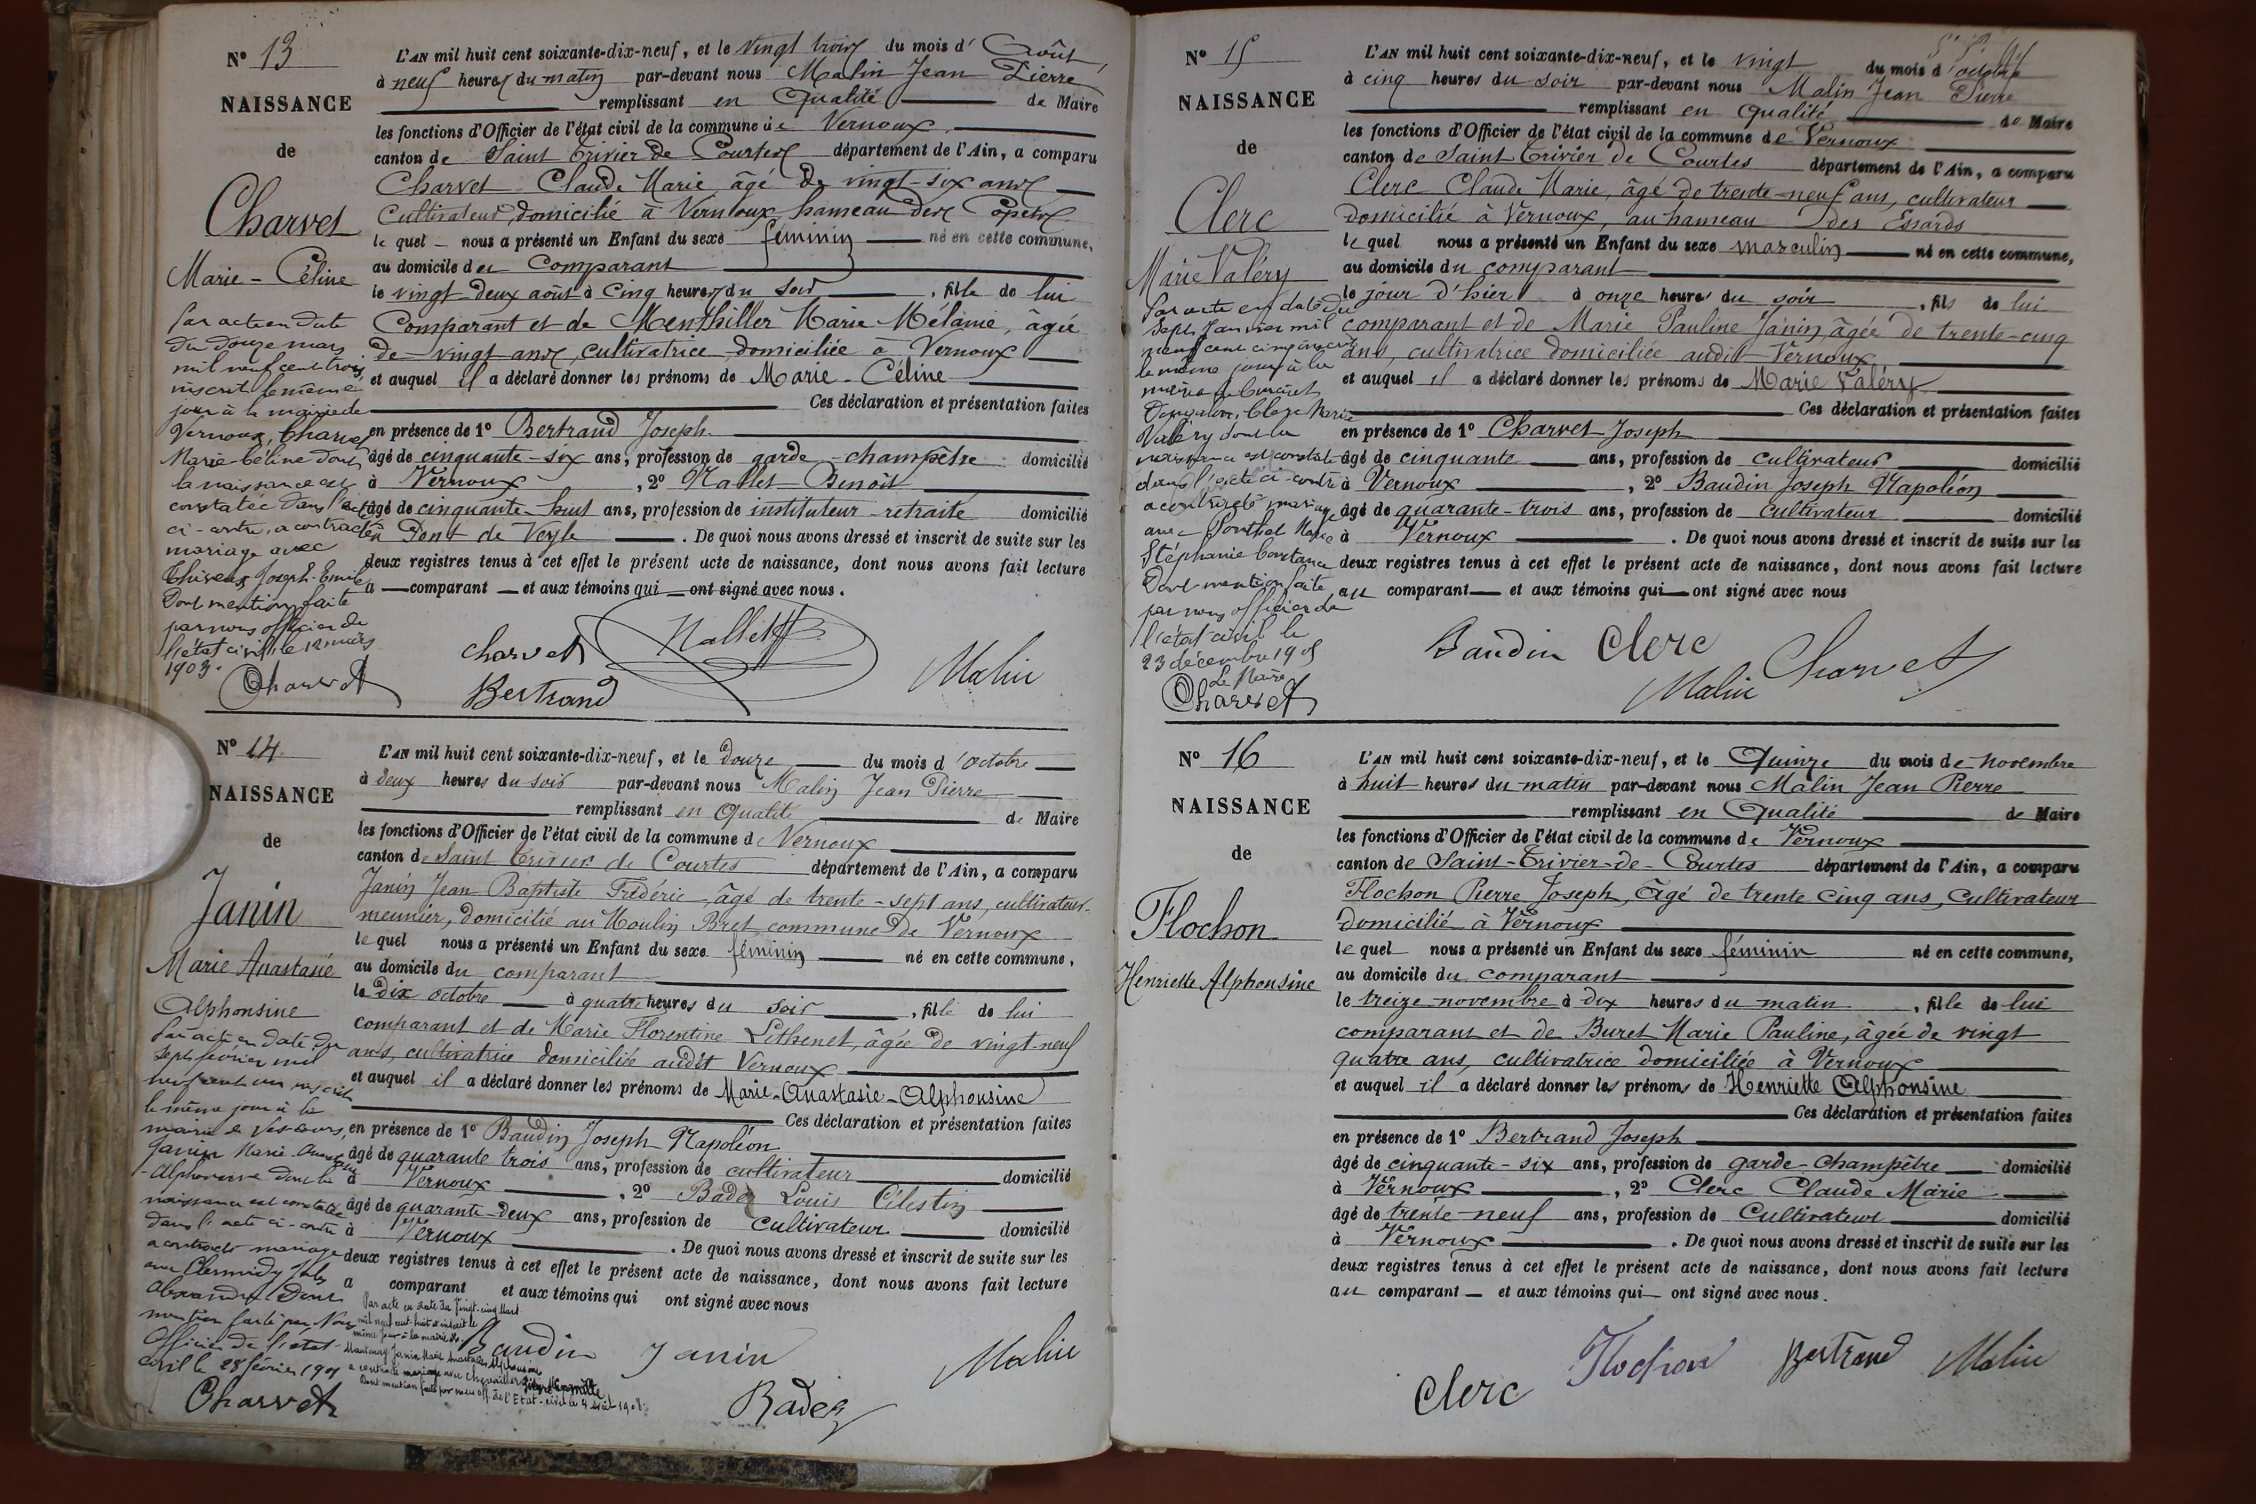 N° 13
NAISSANCE
de
Charvet
Marie - Céline
Par acte en date
du douze mars
mil neuf cent trois,
inscrit le même
jour à la mairie de
Vernoux, Charvet
Marie-Céline dont
la naissance est
constatée dans l'acte
ci-contre, a contracté
mariage avec
Joseph-Emile
Dont mention faite
par nous officier de
l'état civil le 12 mars
1903.
Charvet
L'AN mil huit cent soixante-dix-neuf, et le vingt trois du mois d' Août,
à neuf heures du matin par-devant nous Malin Jean Pierre
remplissant en Qualité de Maire
les fonctions d'Officier de l'état civil de la commune de Vernoux
canton de Saint Trivier de Courtes département de l'Ain, a comparu
Charvet Claude Marie, âgé de vingt-six ans
Cultivateur domicilié à Vernoux hameau des
le quel nous a présenté un Enfant du sexe féminin né en cette commune,
au domicile du Comparant
le vingt-deux août à cinq heures du soir, fille de lui
Comparant et de Menthiller Marie Mélanie, âgée
de vingt ans, cultivatrice domiciliée à Vernoux
et auquel il a déclaré donner les prénoms de Marie-Céline
Ces déclaration et présentation faites
en présence de 1° Bertrand Joseph
âgé de cinquante-six ans, profession de garde-champêtre domicilié
à Vernoux, 2° Nallet Benoît
âgé de cinquante-huit ans, profession de instituteur-retraité domicilié
à Pont de Veyle. De quoi nous avons dressé et inscrit de suite sur les
deux registres tenus à cet effet le présent acte de naissance, dont nous avons fait lecture
a comparant et aux témoins qui ont signé avec nous.
Charvet Nallet
Bertrand Malin
N° 14
NAISSANCE
de
Janin
Marie Anastasie
Alphonsine
Par acte en date du
sept février mil
neuf cent un inscrit
le même jour à la
mairie de Vescours,
Janin Marie Anastasie
Alphonsine dont la
naissance est constatée
dans l'acte ci-contre
a contracté mariage
avec Jules
Alexandre dont
mention faite par Nous
Officier de l'état-
civil le 28 février 1901
Charvet
L'AN mil huit cent soixante-dix-neuf, et le douze du mois d'octobre
à deux heures du soir par-devant nous Malin Jean Pierre
remplissant en Qualité de Maire
les fonctions d'Officier de l'état civil de la commune de Vernoux
canton de Saint Trivier de Courtes département de l'Ain, a comparu
Janin Jean Baptiste Frédéric, âgé de trente-sept ans, cultivateur-
meunier, domicilié au Moulin Bret, commune de Vernoux
le quel nous a présenté un Enfant du sexe féminin né en cette commune,
au domicile du comparant
le dix octobre à quatre heures du soir, fille de lui
comparant et de Marie Florentine Lethenet, âgée de vingt-neuf
ans, cultivatrice domiciliée audit Vernoux
et auquel il a déclaré donner les prénoms de Marie-Anastasie-Alphonsine
Ces déclaration et présentation faites
en présence de 1° Baudin Joseph Napoléon
âgé de quarante trois ans, profession de cultivateur domicilié
à Vernoux, 2° Badez Louis Célestin
âgé de quarante-deux ans, profession de cultivateur domicilié
à Vernoux. De quoi nous avons dressé et inscrit de suite sur les
deux registres tenus à cet effet le présent acte de naissance, dont nous avons fait lecture
a comparant et aux témoins qui ont signé avec nous
Par acte en date du Vingt-cinq Mars
mil neuf cent huit et inscrit le
même jour à la mairie de
Mantenay Janin Marie Anastasie Alphonsine
a contracté mariage avec
Dont mention faite par nous off. de l'Etat-civil le 4 avril 1908
Baudin Janin Malin
Badez
N° 15
NAISSANCE
de
Clerc
Marie Valéry
Par acte en date du
sept janvier mil
neuf cent cinq inscrit
le même jour à la
mairie de
Clerc Marie
Valéry dont la
naissance est constatée
dans l'acte ci-contre
a contracté mariage
avec Marie
Stéphanie Constance
Dont mention faite
par nous officier de
l'état civil le
23 décembre 1905
Le Maire
Charvet
L'AN mil huit cent soixante-dix-neuf, et le vingt du mois d'octobre
à cinq heures du soir par-devant nous Malin Jean Pierre
remplissant en qualité de Maire
les fonctions d'Officier de l'état civil de la commune de Vernoux
canton de Saint Trivier de Courtes département de l'Ain, a comparu
Clerc Claude Marie, âgé de trente-neuf ans, cultivateur
domicilié à Vernoux, au hameau des Essards
le quel nous a présenté un Enfant du sexe masculin né en cette commune,
au domicile du comparant
le jour d'hier à onze heures du soir, fils de lui
comparant et de Marie Pauline Janin, âgée de trente-cinq
ans, cultivatrice domiciliée audit Vernoux
et auquel il a déclaré donner les prénoms de Marie Valéry
Ces déclaration et présentation faites
en présence de 1° Charvet Joseph
âgé de cinquante ans, profession de cultivateur domicilié
à Vernoux, 2° Baudin Joseph Napoléon
âgé de quarante-trois ans, profession de cultivateur domicilié
à Vernoux. De quoi nous avons dressé et inscrit de suite sur les
deux registres tenus à cet effet le présent acte de naissance, dont nous avons fait lecture
au comparant et aux témoins qui ont signé avec nous
Baudin Clerc
Malin Charvet
N° 16
NAISSANCE
de
Flochon
Henriette Alphonsine
L'AN mil huit cent soixante-dix-neuf, et le Quinze du mois de novembre
à huit heures du matin par-devant nous Malin Jean Pierre
remplissant en Qualité de Maire
les fonctions d'Officier de l'état civil de la commune de Vernoux
canton de Saint-Trivier-de-Courtes département de l'Ain, a comparu
Flochon Pierre Joseph, âgé de trente cinq ans, Cultivateur
domicilié à Vernoux
le quel nous a présenté un Enfant du sexe féminin né en cette commune,
au domicile du comparant
le treize novembre à dix heures du matin, fille de lui
comparant et de Buret Marie Pauline, âgée de vingt
quatre ans, cultivatrice domiciliée à Vernoux
et auquel il a déclaré donner les prénoms de Henriette Alphonsine
Ces déclaration et présentation faites
en présence de 1° Bertrand Joseph
âgé de cinquante-six ans, profession de garde-champêtre domicilié
à Vernoux, 2° Clerc Claude Marie
âgé de trente-neuf ans, profession de Cultivateur domicilié
à Vernoux. De quoi nous avons dressé et inscrit de suite sur les
deux registres tenus à cet effet le présent acte de naissance, dont nous avons fait lecture
au comparant et aux témoins qui ont signé avec nous.
Clerc Flochon Bertrand Malin